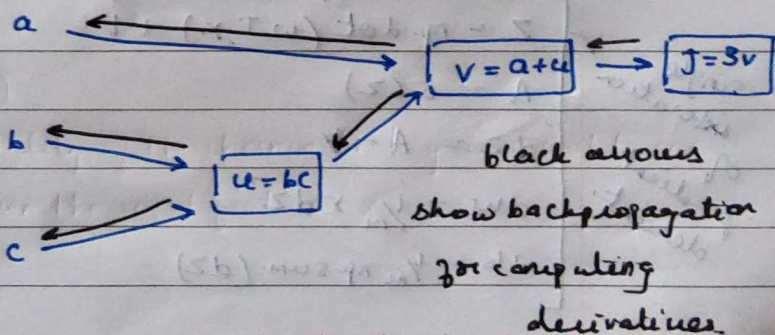 a
V = a+u
J=3v
b
u = bc
c
black arrows
show backpropagation
for computing
derivatives